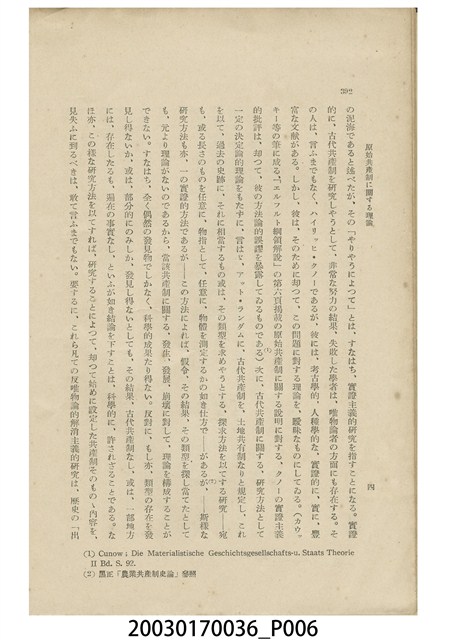 392
原始共產制に關する理論
四
の泥海であると述べたが、その「やりやうによつて」とは、すなはち、實證主義的研究を指すことになる。實證
的に、古代共產制を研究しやうとして、非常な努力の結果、失敗した學者は、唯物論者の方面にも存在する。そ
の人は、言ふまでもなく、ハイリッヒ・クノーであるが、彼には、考古學的、人種學的な、實證的に、實に、豐
富な文獻がある。しかし、彼は、そのために却つて、この問題に對する理論を、曖昧なものにしてゐる。(カウ
キー等の筆に成る「エルフルト綱領解說」の第六頁揭哉の原始共產制に關する說明に對する、クノーの實證主義
的批評は、却つて、彼の方法論的誤謬を暴露してゐるものである)(1)次に、古代共產制に關する、研究方法として
一定の決定論的理論をもたずに、言はゞ、アット・ランダムに、古代共產制を、土地共有制なりと規定し、これ
を以て、過去の史跡に、それに相當するもの或は、その類型を求めやうとする、探求方法を以てする研究——宛
も、或る長さのものを任意に、物指として、任意に、物體を測定するかの如き仕方で——があるが、(2)——斯樣な
研究方法も亦、一の實證的方法であるが——この方法によれば、假令、その結果、その類型を探し當てたとして
も、元より理論がないのであるから、當該共產制に關する、發生、發展、崩壞に對して、理論を構成することが
できない。すなはち、全く偶然の發見物でしかなく、科學的成果たり得ない。反對に、もし亦、類型の存在を發
見し得ないか、或は、部分的にのみしか、發見し得ないとしても、その結果、古代共產制なし、或は、一部地方
には、存在したるも、遍在の事實なし、といふが如き結論を下すことは、科學的に、許されざることである。な
ほ亦、この樣な研究方法を以てすれば、研究することによつて、却つて始めに設定した共產制そのものゝ內容を、
見失ふに到るべきは、敢て言ふまでもない。要するに、これら凡ての反唯物論的解消主義的研究は、歷史の「出
(1) Cunow; Die Materialistische Geschichtsgesellschafts-u. Staats Theorie
II Bd. S. 92.
(2) 黑正「農業共產制史論」參照
20030170036_P006